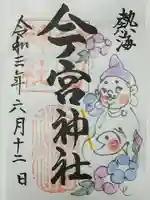 熱海
今宮神社
令和三年六月十二日